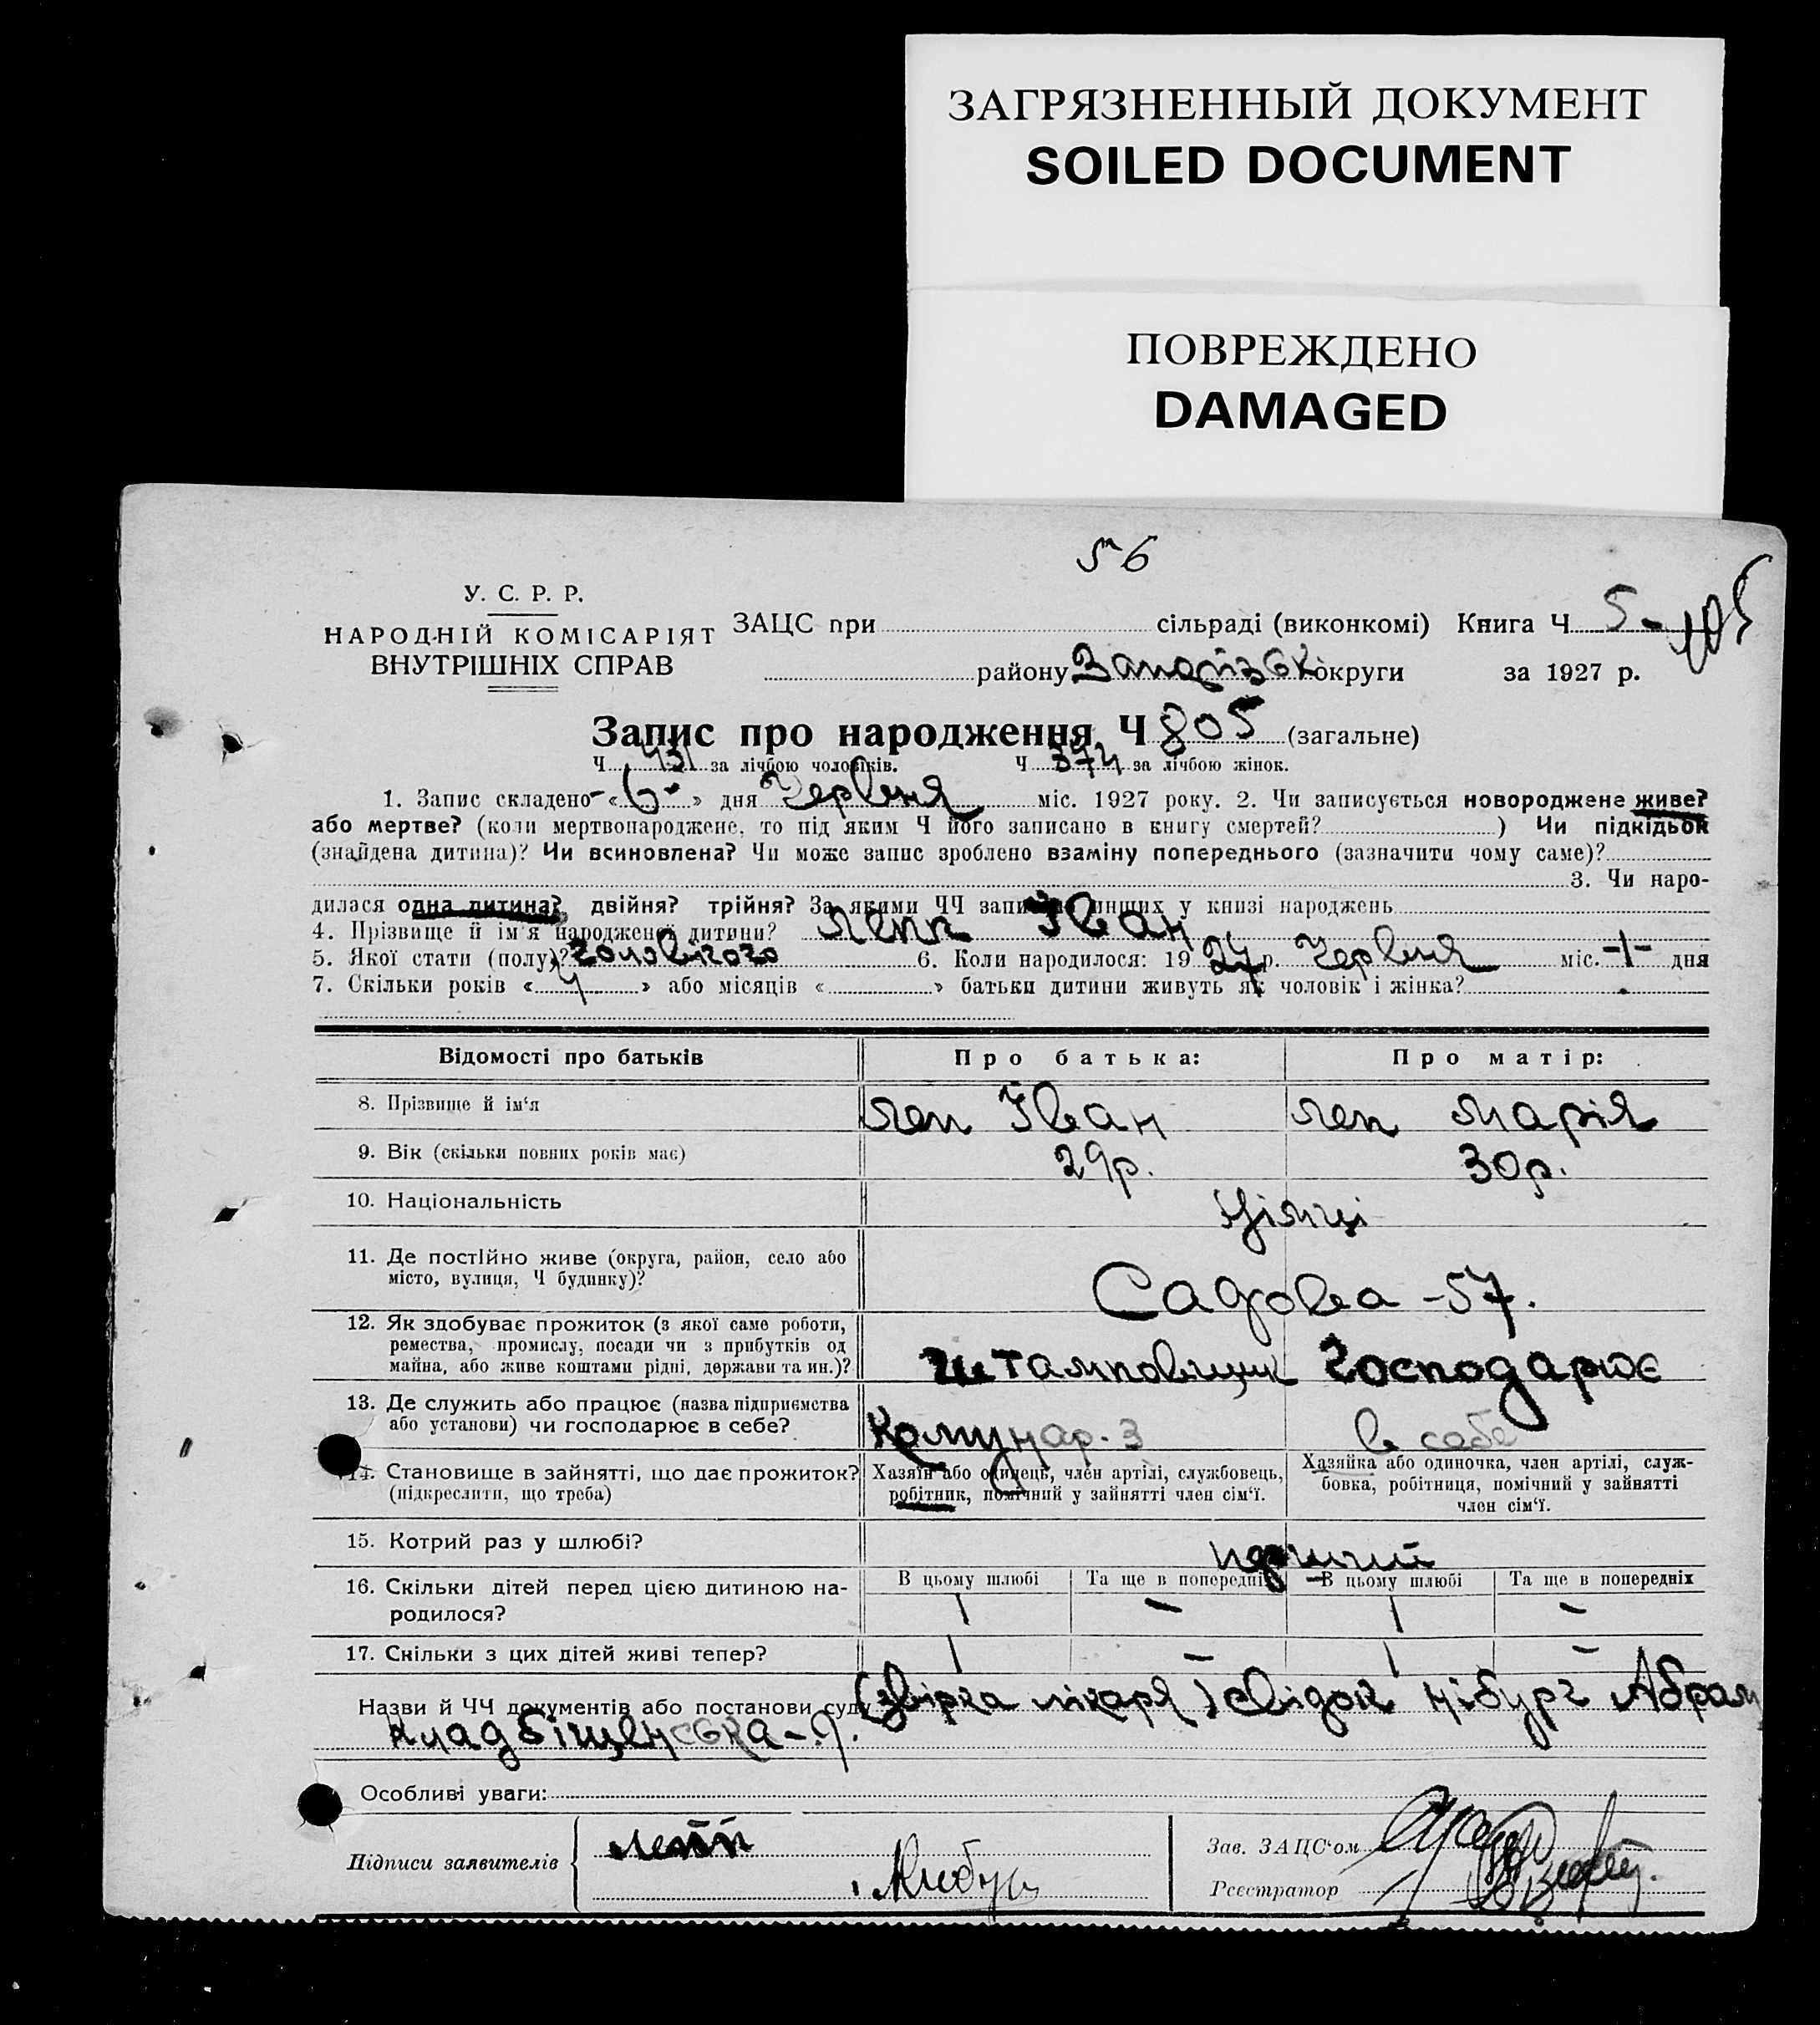 ЗАГРЯЗНЕННЫЙ ДОКУМЕНТ
SOILED DOCUMENT
ПОВРЕЖДЕНО
DAMAGED
56
У. С. Р. Р.
НАРОДНІЙ КОМІСАРІЯТ
ВНУТРІШНІХ СПРАВ
ЗАЦС при сільраді (виконкомі) Книга Ч 5-
району Запорізьк округи за 1927 р.
Запис про народження Ч 805 (загальне)
Ч 431 за лічбою чоловіків. Ч 374 за лічбою жінок.
1. Запис складено «6» дня Червня міс. 1927 року. 2. Чи записується новороджене живе?
або мертве? (коли мертвонароджене, то під яким Ч його записано в книгу смертей? ) Чи підкідьок
(знайдена дитина)? Чи всиновлена? Чи може запис зроблено взаміну попереднього (зазначити чому саме)?
3. Чи наро-
дилася одна дитина? двійня? трійня? За якими ЧЧ записано инших у книзі народжень
4. Прізвище й ім'я народженої дитини? Лепп Іван
5. Якої стати (полу)? Чоловічого 6. Коли народилося: 1927 р. Червня міс. -1- дня
7. Скільки років «4» або місяців « » батьки дитини живуть як чоловік і жінка?
Відомості про батьків Про батька: Про матір:
8. Прізвище й ім'я Леп Іван Леп Марія
9. Вік (скільки повних років має) 29р. 30р.
10. Національність Німці
11. Де постійно живе (округа, район, село або
місто, вулиця, Ч будинку)? Садова -57.
12. Як здобуває прожиток (з якої саме роботи,
ремества, промислу, посади чи з прибутків од
майна, або живе коштами рідні, держави та ин.)? Штамповщик Господарює
13. Де служить або працює (назва підприємства
або установи) чи господарює в себе? Комунар. З в себе
14. Становище в зайнятті, що дає прожиток?
(підкреслити, що треба)
Хазяїн або одинець, член артілі, службовець,
робітник, помічний у зайнятті член сім'ї.
Хазяйка або одиночка, член артілі, служ-
бовка, робітниця, помічний у зайнятті
член сім'ї.
15. Котрий раз у шлюбі? перший
16. Скільки дітей перед цією дитиною на-
родилося?
В цьому шлюбі Та ще в попередніх В цьому шлюбі Та ще в попередніх
1 - 1 -
17. Скільки з цих дітей живі тепер? 1 - 1 -
Назви й ЧЧ документів або постанови суду (Звірка лікаря) свідок Нібург Абрам
Кладбіщенська-9.
Особливі уваги:
Підписи заявителів Лепп
Зав. ЗАЦС'ом
Реєстратор